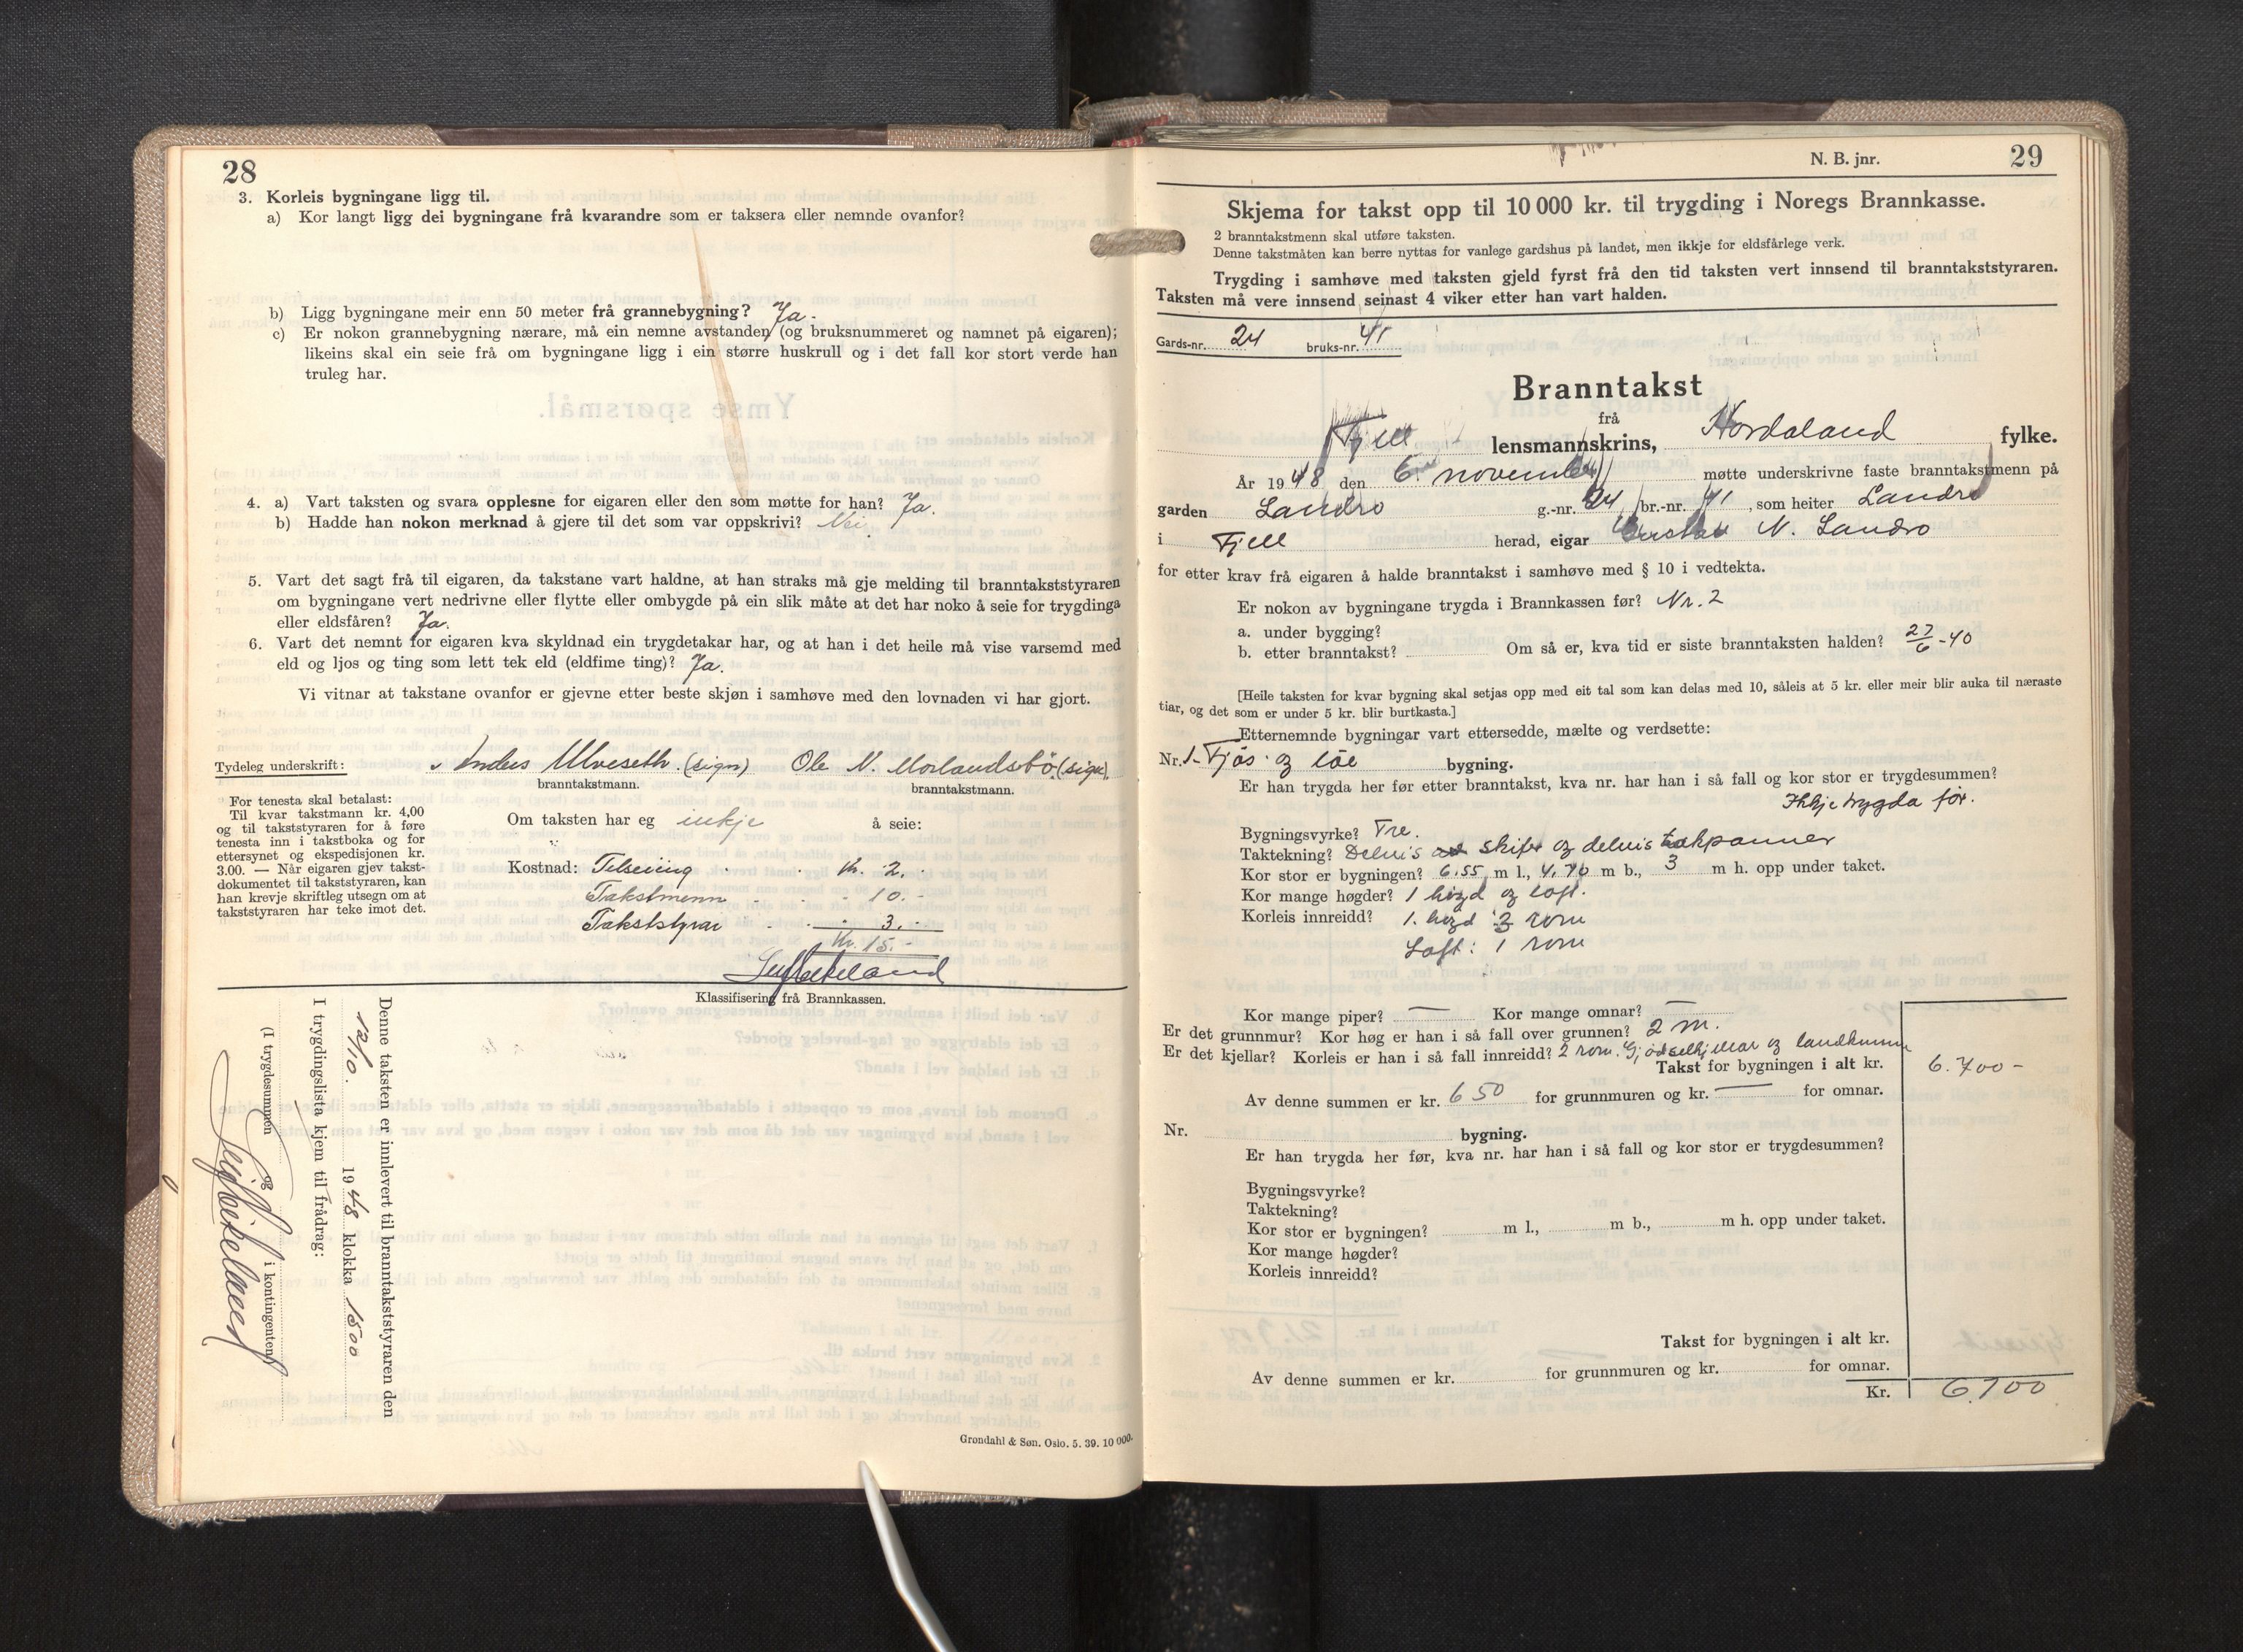 28
3. Korleis bygningane ligg til.
a) Kor langt ligg dei bygningane frå kvarandre som er taksera eller nemnde ovanfor?
b) Ligg bygningane meir enn 50 meter frå grannebygning? Ja.
c) Er nokon grannebygning nærare, må ein nemne avstanden (og bruksnummeret og namnet på eigaren);
likeins skal ein seie frå om bygningane ligg i ein større huskrull og i det fall kor stort verde han
truleg har.
4. a) Vart taksten og svara opplesne for eigaren eller den som møtte for han? Ja.
b) Hadde han nokon merknad å gjere til det som var oppskrivi? Nei
5. Vart det sagt frå til eigaren, da takstane vart haldne, at han straks må gje melding til branntakststyraren
om bygningane vert nedrivne eller flytte eller ombygde på ein slik måte at det har noko å seie for trygdinga
eller eldsfåren? Ja.
6. Vart det nemnt for eigaren kva skyldnad ein trygdetakar har, og at han i det heile må vise varsemd med
eld og ljos og ting som lett tek eld (eldfime ting)? Ja.
Vi vitnar at takstane ovanfor er gjevne etter beste skjøn i samhøve med den lovnaden vi har gjort.
Tydeleg underskrift: Anders Ulveseth (sign) Ole N. Morlandsbö (sign),
branntakstmann. branntakstmann.
For tenesta skal betalast:
Til kvar takstmann kr. 4,00
og til takststyraren for å føre
tenesta inn i takstboka og for
ettersynet og ekspedisjonen kr.
3.00. — Når eigaren gjev takst-
dokumentet til takststyraren, kan
han krevje skriftleg utsegn om at
takststyraren har teke imot det.
Om taksten har eg inkje å seie:
Kostnad: Tilseiing kr. 2.-
Takstmenn - 10.-
Takststyrar - 3.-
kr. 15.-
Klassifisering frå Brannkassen.
Denne taksten er innlevert til branntakststyraren den
12/10. 1948 klokka 1500
I trygdingslista kjem til frådrag:
(I trygdesummen og i kontingenten)
Grøndahl & Søn. Oslo. 5. 39. 10 000.
N. B. jnr. 29
Skjema for takst opp til 10 000 kr. til trygding i Noregs Brannkasse.
2 branntakstmenn skal utføre taksten.
Denne takstmåten kan berre nyttas for vanlege gardshus på landet, men ikkje for eldsfårlege verk.
Trygding i samhøve med taksten gjeld fyrst frå den tid taksten vert innsend til branntakststyraren.
Taksten må vere innsend seinast 4 viker etter han vart halden.
Gards-nr. 24 bruks-nr. 41
Branntakst
frå
Fjell lensmannskrins, Hordaland fylke.
År 1948 den 6. november møtte underskrivne faste branntakstmenn på
garden Landro g.-nr. 24 br.-nr. 41, som heiter Landro
i Fjell herad, eigar N. Landro
for etter krav frå eigaren å halde branntakst i samhøve med § 10 i vedtekta.
Er nokon av bygningane trygda i Brannkassen før? Nr. 2
a. under bygging?
b. etter branntakst? Om så er, kva tid er siste branntaksten halden? 27/6-40
[Heile taksten for kvar bygning skal setjas opp med eit tal som kan delas med 10, såleis at 5 kr. eller meir blir auka til næraste
tiar, og det som er under 5 kr. blir burtkasta.]
Etternemnde bygningar vart ettersedde, mælte og verdsette:
Nr. 1. Fjös og löe bygning.
Er han trygda her før etter branntakst, kva nr. har han i så fall og kor stor er trygdesummen?
Ikkje trygda för.
Bygningsvyrke? Tre.
Taktekning? Delvis skifer og delvis takpanner
Kor stor er bygningen? 6.55 m l., 4.70 m b., 3 m h. opp under taket.
Kor mange høgder? 1 högd og loft.
Korleis innreidd? 1. högd 3 rom
Loft: 1 rom
Kor mange piper? — Kor mange omnar? —
Er det grunnmur? Kor høg er han i så fall over grunnen? 2 m.
Er det kjellar? Korleis er han i så fall innreidd? 2 rom. Gjödselkjellar og landkummer
Takst for bygningen i alt kr. 6.700-
Av denne summen er kr. 650 for grunnmuren og kr. — for omnar.
Nr. bygning.
Er han trygda her før, kva nr. har han i så fall og kor stor er trygdesummen?
Bygningsvyrke?
Taktekning?
Kor stor er bygningen? m l., m b., m h. opp under taket.
Kor mange høgder?
Korleis innreidd?
Takst for bygningen i alt kr.
Av denne summen er kr. for grunnmuren og kr. for omnar.
Kr. 6.700